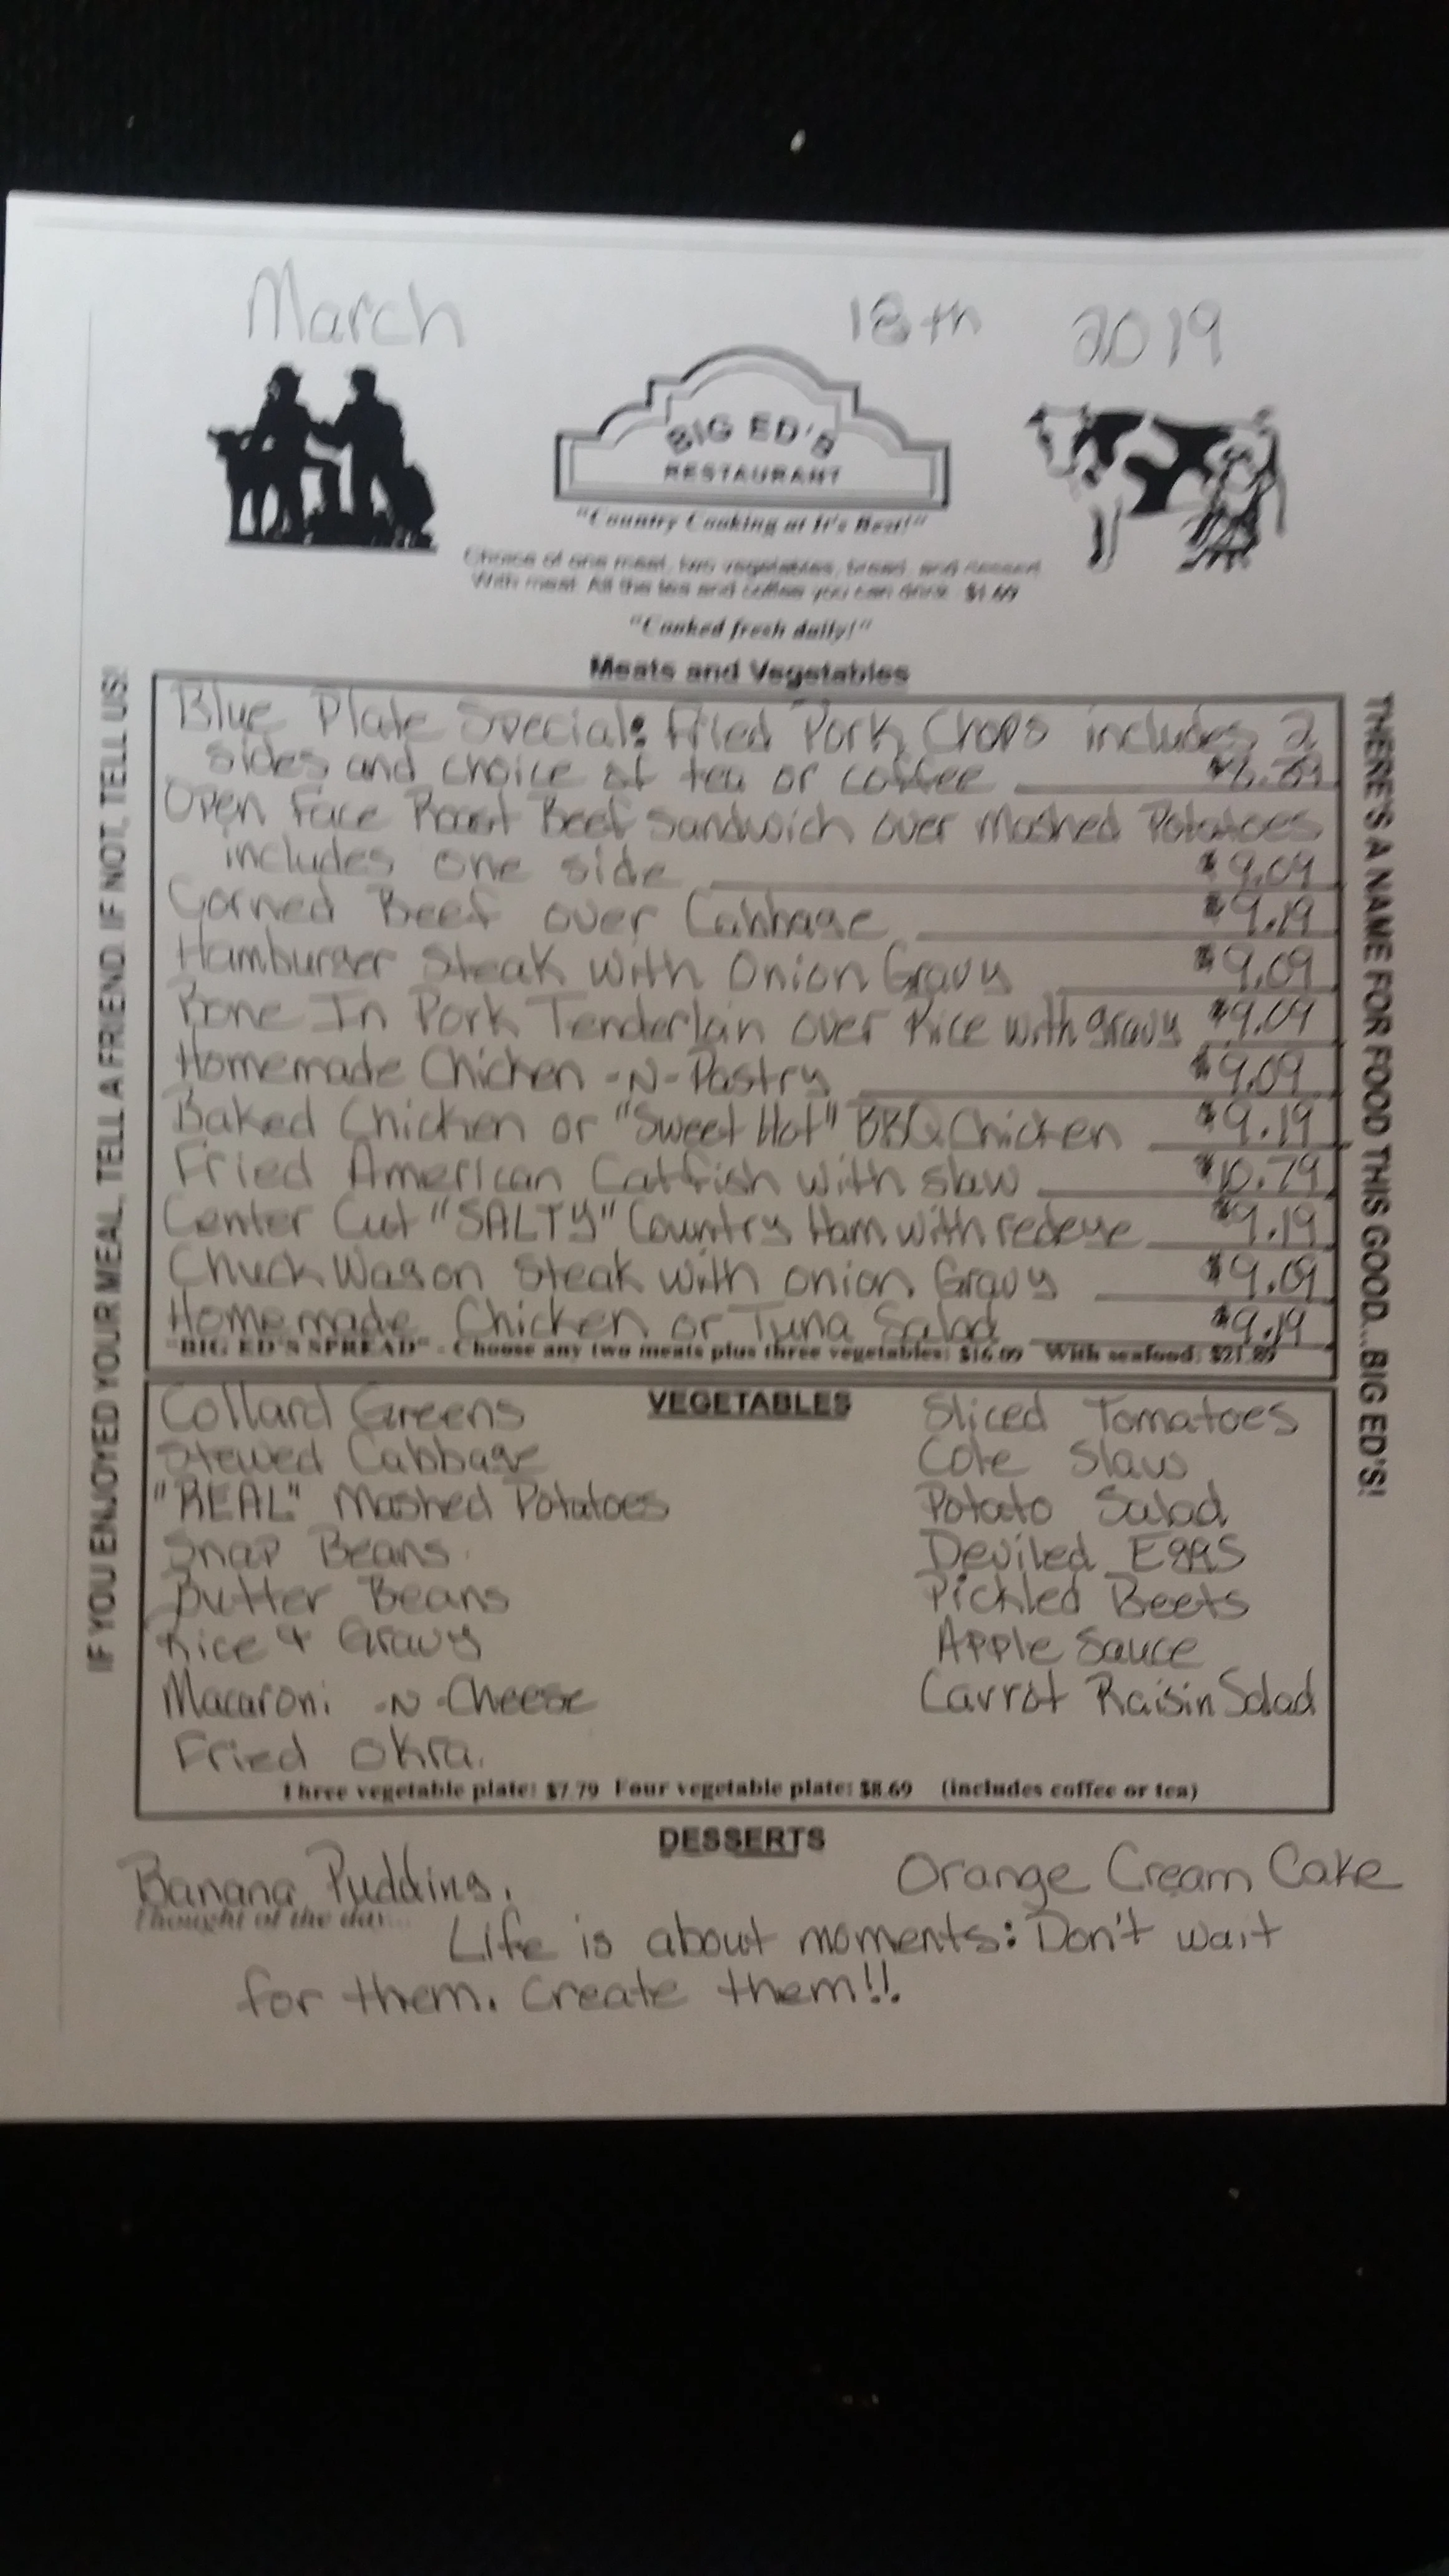 March 18th 2019
BIG ED'S
RESTAURANT
"Country Cooking at It's Best!"
Choice of one meat, two vegetables, bread, and dessert
With meat. All the tea and coffee you can drink $1.69
"Cooked fresh daily!"
IF YOU ENJOYED YOUR MEAL, TELL A FRIEND. IF NOT, TELL US!
Meats and Vegetables
Blue Plate Special: Fried Pork Chops includes 2
sides and choice of tea or coffee
Open Face Roast Beef Sandwich over Mashed Potatoes
includes one side $9.09
Corned Beef over Cabbage $9.19
Hamburger Steak with Onion Gravy $9.09
Bone In Pork Tenderloin over Rice with gravy $9.09
Homemade Chicken -N- Pastry $9.09
Baked Chicken or "Sweet Hot" BBQ Chicken $9.19
Fried American Catfish with slaw $10.79
Center Cut "SALTY" Country Ham with redeye $9.19
Chuck Wagon Steak with onion Gravy $9.09
Homemade Chicken or Tuna Salad $9.19
"BIG ED'S SPREAD" - Choose any two meats plus three vegetables: $16.09 With seafood: $21.89
THERE'S A NAME FOR FOOD THIS GOOD...BIG ED'S!
VEGETABLES
Collard Greens
Stewed Cabbage
"REAL" Mashed Potatoes
Snap Beans
Butter Beans
Rice & Gravy
Macaroni -N- Cheese
Fried Okra
Sliced Tomatoes
Cole Slaw
Potato Salad
Deviled Eggs
Pickled Beets
Apple Sauce
Carrot Raisin Salad
Three vegetable plate: $7.79 Four vegetable plate: $8.69 (includes coffee or tea)
DESSERTS
Banana Pudding Orange Cream Cake
Thought of the day...
Life is about moments: Don't wait
for them. Create them!!